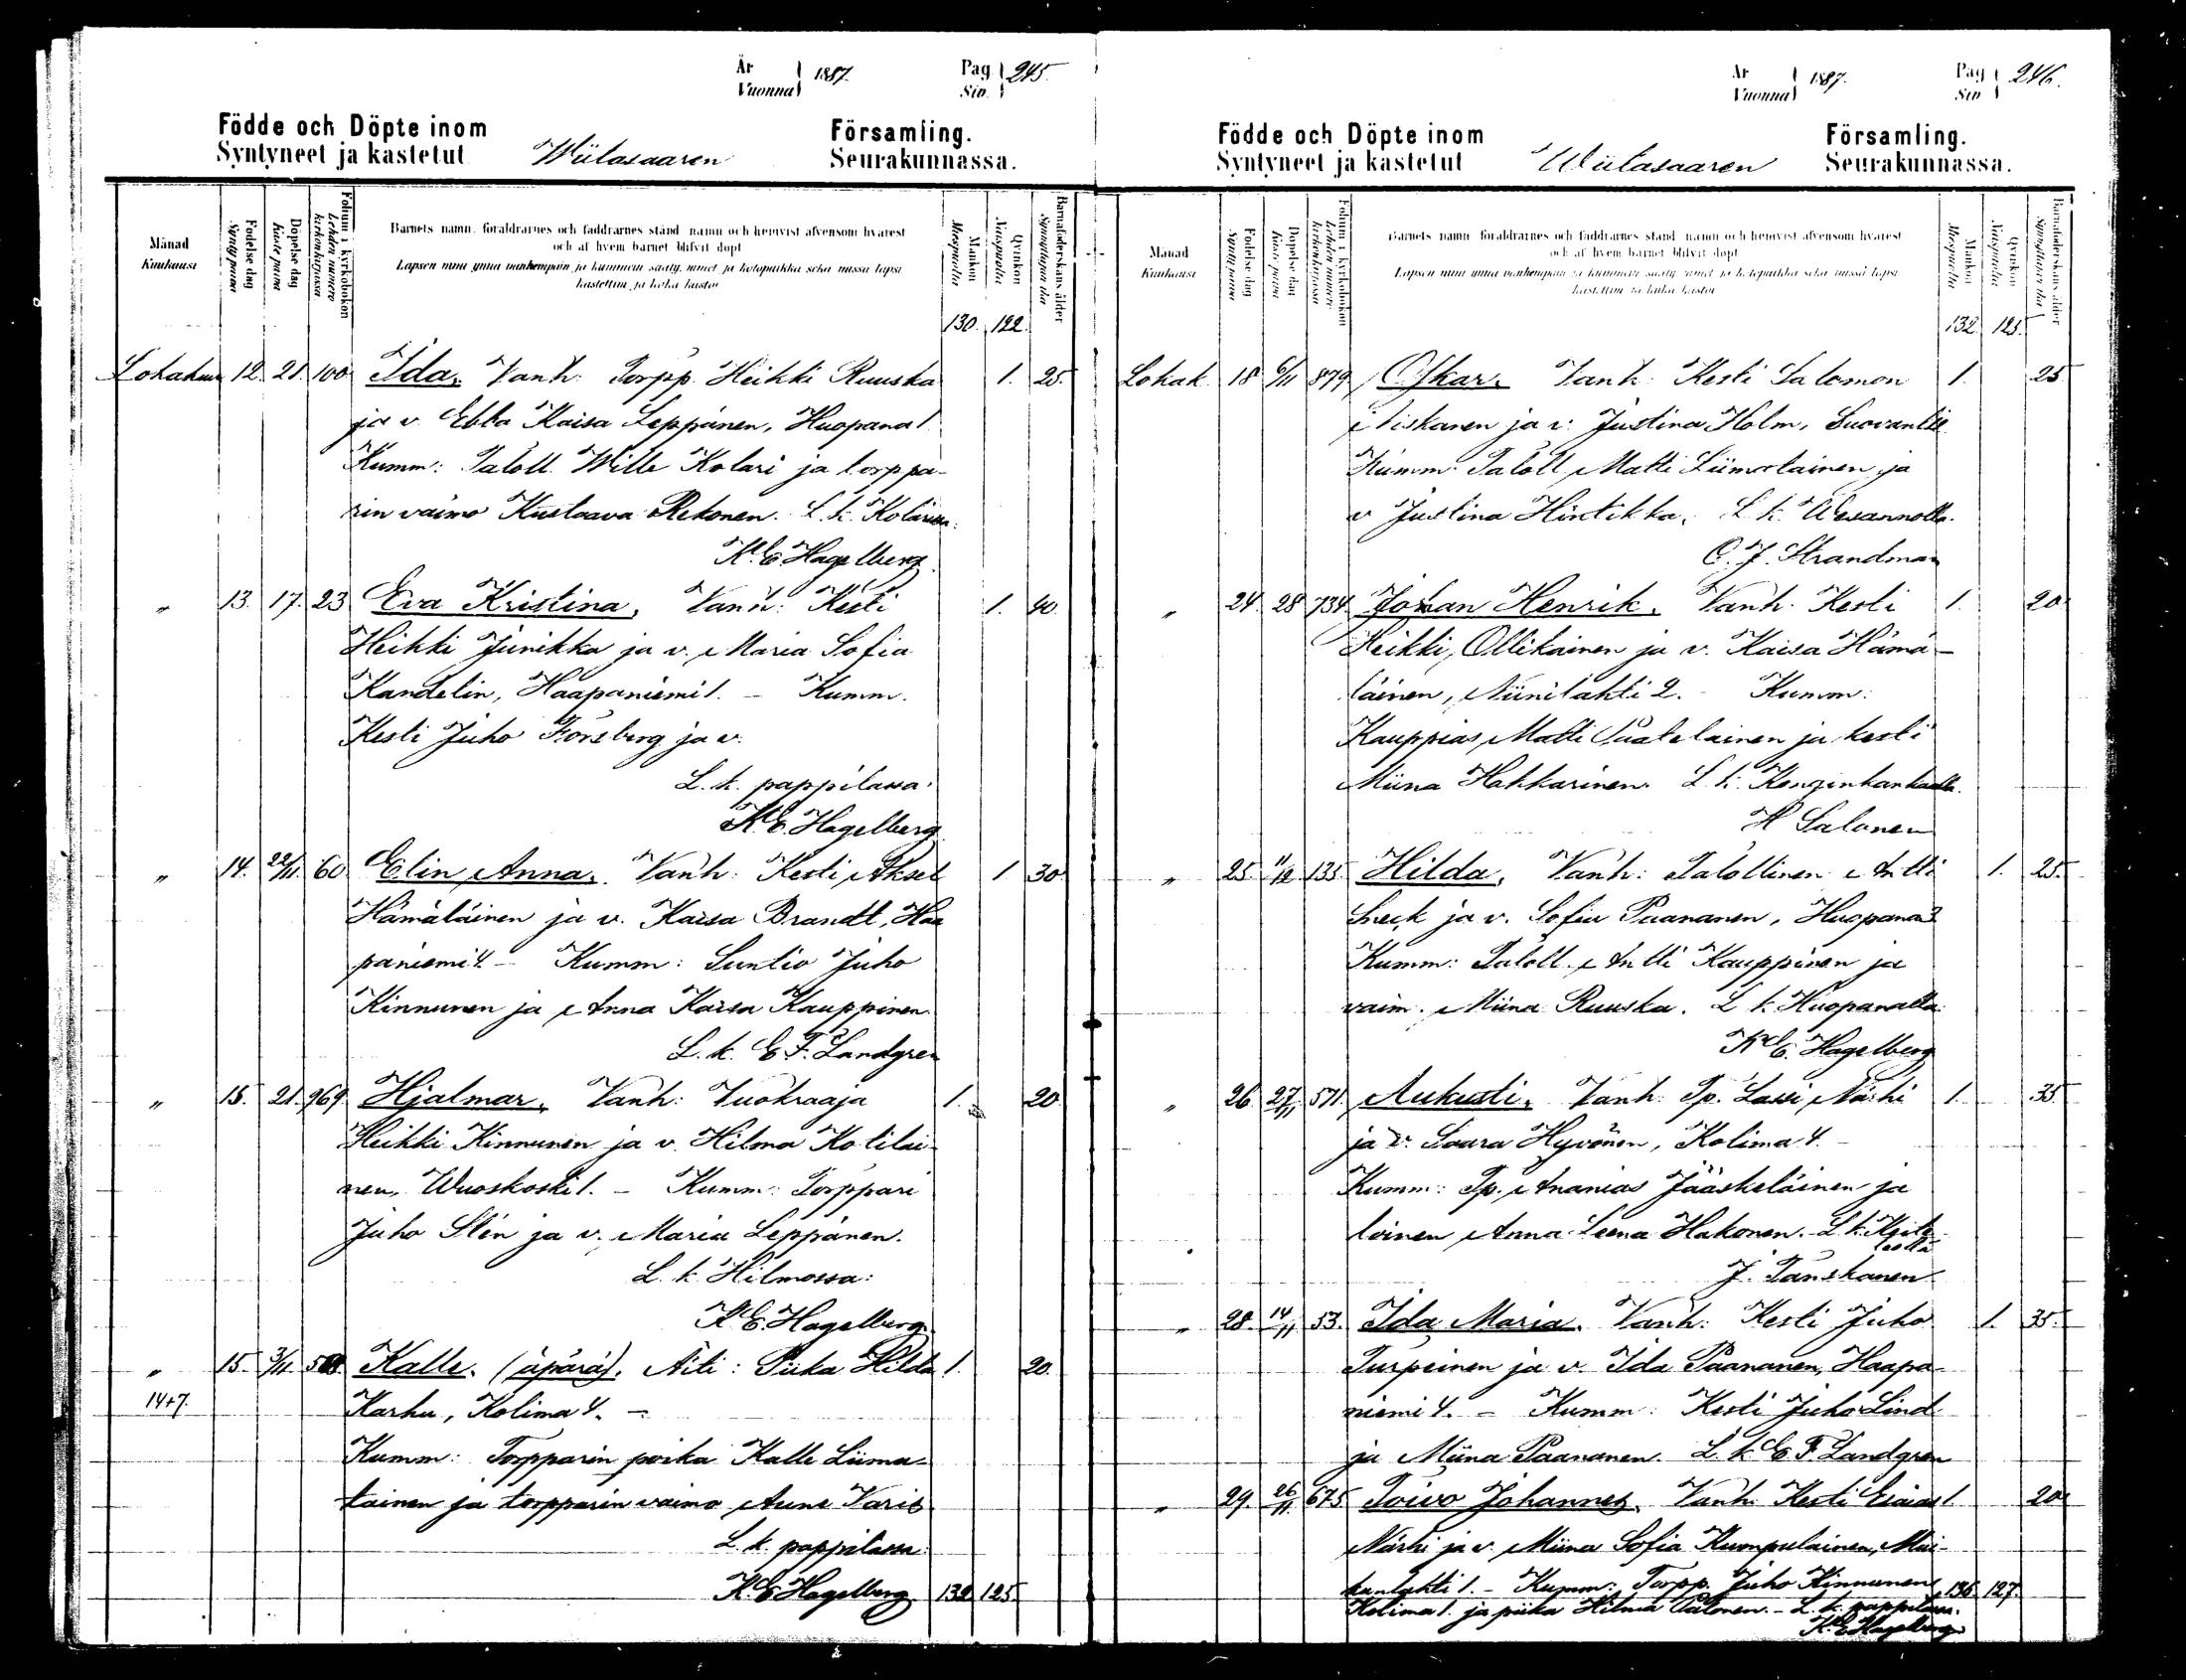 År Vuonna 1887. Pag Siv. 245.
Födde och Döpte inom Församling.
Syntyneet ja kastetut Wiitasaaren Seurakunnassa.
Månad Kuukausi
Födelse dag Synty päivä
Döpelse dag Kaste päivä
Folium i kyrkoboken Lehden numero kirkonkirjassa
Barnets namn, föräldrarnes och faddrarnes stånd namn och hemvist äfvensom hvarest
och af hvem barnet blifvit döpt
Lapsen nimi ynnä vanhempain ja kummein sääty, nimet ja kotopaikka sekä missä lapsi
kastettiin ja kuka kastoi
Mankön Miespuolia
Qvinkön Naispuolia
Barnaföderskans ålder Synnyttäjän ikä
130. 122.
Lokakuu 12. 21. 100 Ida. Vanh. Torpp. Heikki Ruuska 1. 25.
ja v. Ebba Kaisa Leppänen, Huopana 1.
Kumm: Taloll. Wille Kolari ja torppa-
rin vaimo Kustaava Rekonen. L. k. Kolarissa.
K. E. Hagelberg.
" 13. 17. 23 Eva Kristina, Vanh: Kesti 1. 40.
Heikki Junikka ja v. Maria Sofia
Kandelin, Haapaniemi 1. - Kumm.
Kesti Juho Forsberg ja v.
L. k. pappilassa.
K. E. Hagelberg
" 14. 22/11. 60 Elin Anna. Vanh: Kesti Aksel 1 30.
Hämäläinen ja v. Kaisa Brandt, Haa
paniemi 4. - Kumm: Suntio Juho
Kinnunen ja Anna Kaisa Kauppinen.
L. k. E. F. Landgren
" 15. 21. 969. Hjalmar, Vanh: Vuokraaja 1. 20.
Heikki Kinnunen ja v. Hilma Kotilai-
nen, Wuoskoski 1. - Kumm: Torppari
Juho Stén ja v. Maria Leppänen.
L. k. Hilmossa:
K. E. Hagelberg.
" 15. 3/11. Kalle. (äpärä). Äiti: Piika Hilda 1. 20.
14+7. Karhu, Kolima 4. -
Kumm: Torpparin poika Kalle Liima-
tainen ja torpparin vaimo Aune Varis
L. k. pappilassa.
K. E. Hagelberg 132 125.
År Vuonna 1887. Pag Siv 246.
Födde och Döpte inom Församling.
Syntyneet ja kastetut Wiitasaaren Seurakunnassa.
Månad Kuukausi
Födelse dag Synty päivä
Döpelse dag Kaste päivä
Folium i kyrkoboken Lehden numero kirkonkirjassa
Barnets namn föräldrarnes och faddrarnes stånd namn och hemvist äfvensom hvarest
och af hvem barnet blifvit döpt
Lapsen nimi ynnä vanhempain ja kummein sääty nimet ja kotopaikka sekä missä lapsi
kastettiin ja kuka kastoi
Mankön Miespuolia
Qvinkön Naispuolia
Barnaföderskans ålder Synnyttäjän ikä
132. 125.
Lokak. 18 6/11 879 Oskar. Vanh: Kesti Salomon 1. 25
Niskanen ja v: Justina Holm, Suovanlie
Kumm: Taloll. Matti Liimatainen ja
v Justina Hintikka. L. k. Wesannolla.
O. J. Strandman
" 24. 28 734. Johan Henrik. Vanh. Kesti 1. 20
Heikki Ollikainen ja v. Kaisa Hämä-
läinen, Niinilahti 2. Kumm:
Kauppias Matti Puatelainen ja kesti
Miina Hakkarinen. L. k. Kenginkankaalla.
H Salonen
" 25. 11/12 135 Hilda, Vanh: Talollinen Antti 1. 25.
Sneck ja v. Sofia Paananen, Huopana 3
Kumm: Taloll. Antti Kauppinen ja
vaim. Miina Ruuska. L k. Huopanalla.
K. E. Hagelberg
" 26. 27/11 571. Aukusti. Vanh: Tp. Lassi Närhi 1. 35
ja v. Saara Hyvönen, Kolima 4. -
Kumm: Tp. Ananias Jääskeläinen ja
loinen Anna Leena Hakonen. L. k. Keite-
leellä
J. Tanskanen.
" 28. 14/11 53. Ida Maria. Vanh: Kesti Juho 1. 35.
Turpeinen ja v. Ida Paananen, Haapa-
niemi 4. - Kumm: Kesti Juho Lind
ja Miina Paananen. L. k. E. F. Landgren
" 29. 26/11. 675 Toivo Johannes. Vanh: Kesti Esaias 1. 20
Närhi ja v. Miina Sofia Kumpulainen, Mui-
kunlahti 1. - Kumm: Torpp. Juho Kinnunen 136. 127.
Kolima 1. ja piika Hilma Salonen. - L. k. pappilassa.
K. E. Hagelberg